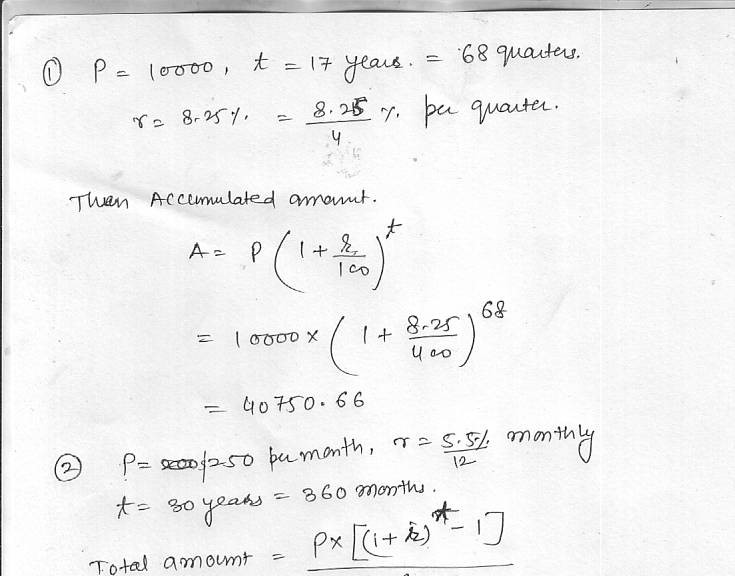 ① P = 10000, t = 17 years. = 68 quarters.
r = 8.25%. = 8.25/4 %. per quarter.
Then Accumulated amount.
A = P (1 + r/100)^t
= 10000 × (1 + 8.25/400)^68
= 40750.66
② P = $250 per month, r = 5.5%/12 monthly
t = 30 years = 360 months.
Total amount = P× [(1 + r)^t - 1]